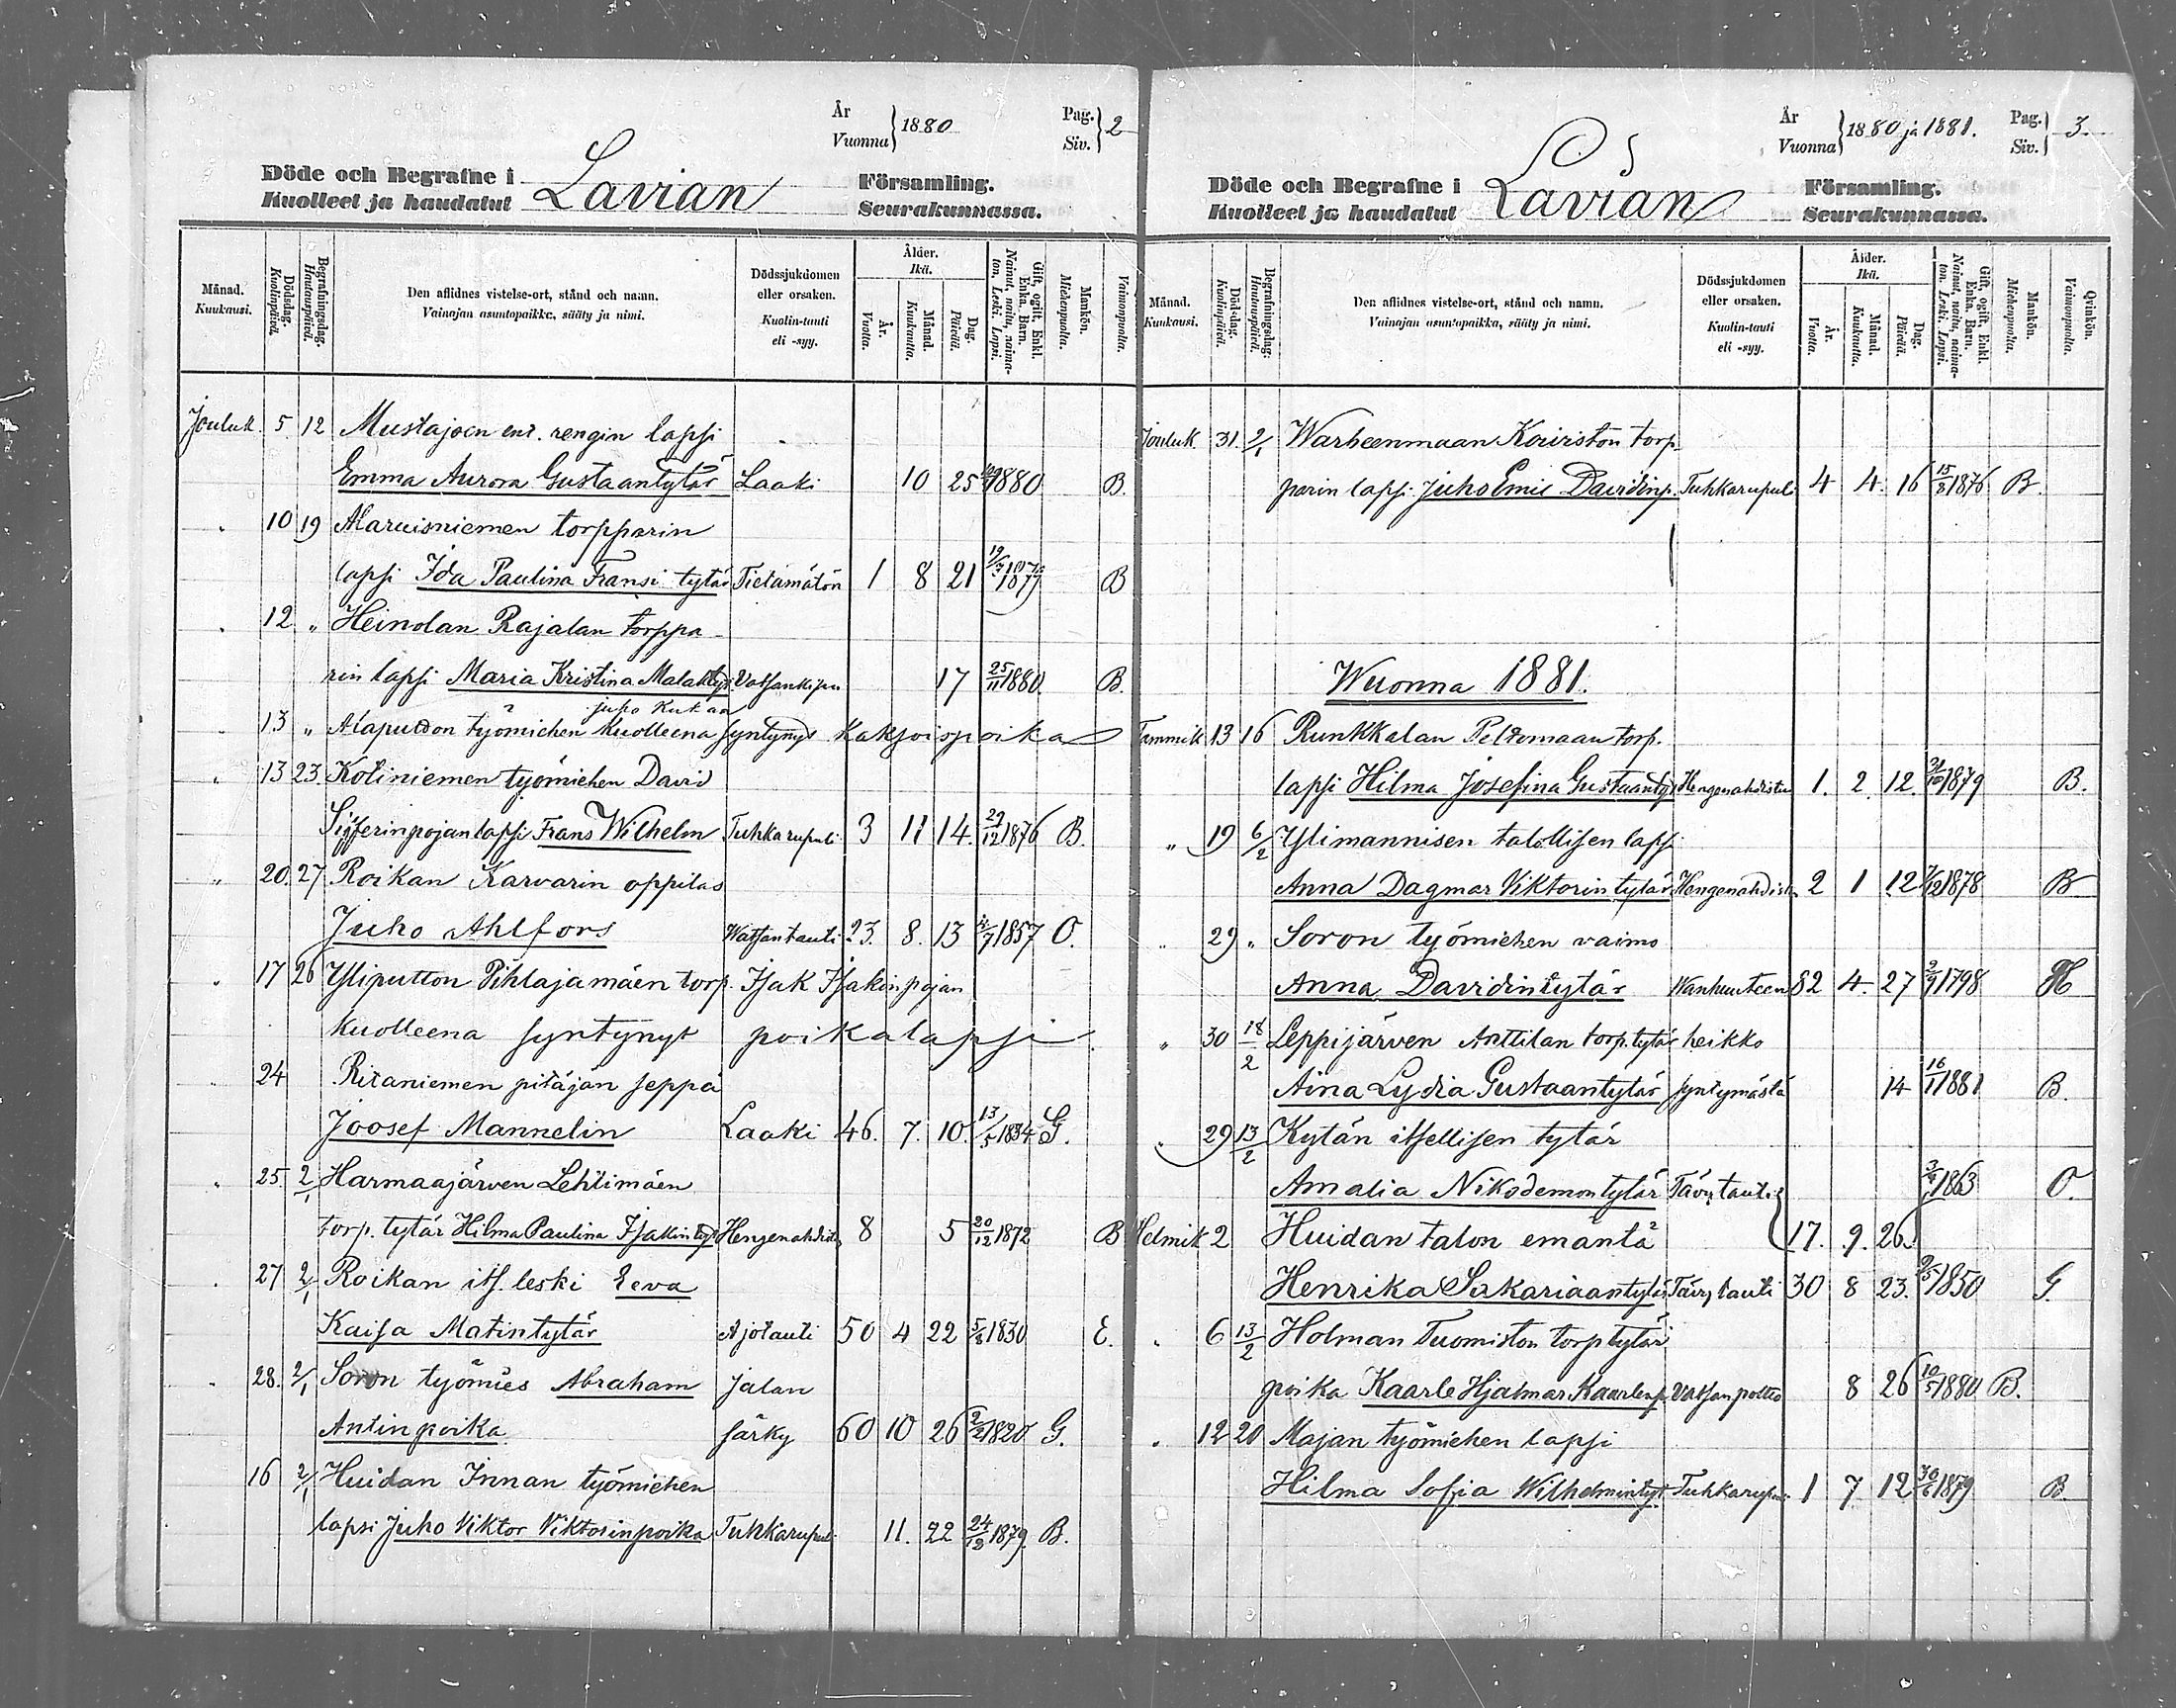 År
Vuonna } 1880
Pag.
Siv. } 2
Döde och Begrafne i
Kuolleet ja haudatut
Lavian
Församling.
Seurakunnassa.
Månad. Kuukausi.
Dödsdag. Kuolinpäivä.
Begrafningsdag. Hautauspäivä.
Den aflidnes vistelse-ort, stånd och namn.
Vainajan asuntopaikka, sääty ja nimi.
Dödssjukdomen eller orsaken.
Kuolin-tauti eli -syy.
Ålder. Ikä.
År. Vuotta.
Månad. Kuukautta.
Dag. Päivää.
Gift, ogift, Enkl. Enka. Barn.
Nainut, naitu, naimaton. Leski. Lapsi.
Mankön. Miehenpuolta.
Vaimonpuolta.
Jouluk. 5. 12 Mustajoen ent. rengin lapsi
Emma Aurora Gustaantytär Laaki 10 25 1880 B.
" 10 19 Alaruisniemen torpparin
lapsi Ida Paulina Fransi tytär Tietämätön 1 8 21 19/3 1877 B
" 12 " Heinolan Rajalan torppa-
rin lapsi Maria Kristina Malaktyt. Vatsankipu 17 25/11 1880. B.
juho Kustaa
" 13 " Alaputon työmiehen kuolleena syntynyt kaksoispoika
" 13 23. Kotiniemen työmiehen David
Sifferinpojan lapsi Frans Wilhelm Tuhkarupuli 3 11 14. 29/12 1876 B.
" 20. 27 Roikan Karvarin oppilas
Juho Ahlfors Watsantauti 23. 8. 13 /7 1857 O.
" 17 26 Yliputton Pihlajamäen torp. Isak Isakinpojan
Kuolleena syntynyt poikalapsi.
" 24 Ritaniemen pitäjän seppä
Joosef Mannelin Laaki 46. 7. 10. 13/5 1834 G.
" 25. 2/1 Harmaajärven Lehtimäen
torp. tytär Hilma Paulina Isakin tyt. Hengenahdist. 8 5 20/12 1872 B
" 27 2/1 Roikan its. leski Eeva
Kaisa Matintytär Ajotauti 50 4 22 5/8 1830 E.
" 28. 2/1 Soron työmies Abraham jalan
Antinpoika särky 60 10 26 2/2 1820 G.
16 2/1 Huidan Innan työmiehen
lapsi Juho Viktor Viktorinpoika Tuhkarupuli 11. 22 24/12 1879. B.
År
Vuonna } 1880 ja 1881.
Pag.
Siv. } 3.
Döde och Begrafne i
Kuolleet ja haudatut
Lavian
Församling.
Seurakunnassa.
Månad. Kuukausi.
Död-dag. Kuolinpäivä.
Begrafningsdag. Hautauspäivä.
Den aflidnes vistelse-ort, stånd och namn.
Vainajan asuntopaikka, sääty ja nimi.
Dödssjukdomen eller orsaken.
Kuolin-tauti eli -syy.
Ålder. Ikä.
År. Vuotta.
Månad. Kuukautta.
Dag. Päivää.
Gift, ogift, Enkl. Enka. Barn.
Nainut, naitu, naimaton. Leski. Lapsi.
Mankön. Miehenpuolta.
Qvinkön. Vaimonpuolta.
Jouluk 31. 2/1 Warheenmaan Kouriston torp
parin lapsi Juho Emil Davidinp. Tuhkarupuli 4 4. 16 15/8 1876 B.
Wuonna 1881.
Tammik 13 16 Runkkalan Peltomaan torp.
lapsi Hilma Josefina Gustaantyt Hengenahdistu 1. 2. 12. 31/10 1879 B.
" 19 6/2 Ylimannisen talollisen lapsi
Anna Dagmar Viktorin tytär Hengenahdist. 2 1 12 7/12 1878 B
" 29 " Soron työmiehen vaimo
Anna Davidintytär Wanhuuteen 82 4. 27 2/9 1798 H
" 30 18/2 Leppijärven Anttilan torp. tytär heikko
Aina Lydia Gustaantytär syntymästä 14 16/1 1881 B.
" 29 13/2 Kytän itsellisen tytär
Amalia Nikodemontytär Tävytauti 3/4 1863 O.
Helmik 2 Huidan talon emäntä 17. 9. 26.
Henrika Sakariaantytär Tävytauti 30 8 23. 9/5 1850 G.
" 6 13/2 Holman Tuomiston torp tytär
poika Kaarle Hjalmar Kaarlenp. Vatsanpoltto 8 26 10/5 1880 B.
" 12 20 Majan työmiehen lapsi
Hilma Sofia Wilhelmintyt. Tuhkarupu. 1 7 12 30/6 1879 B.